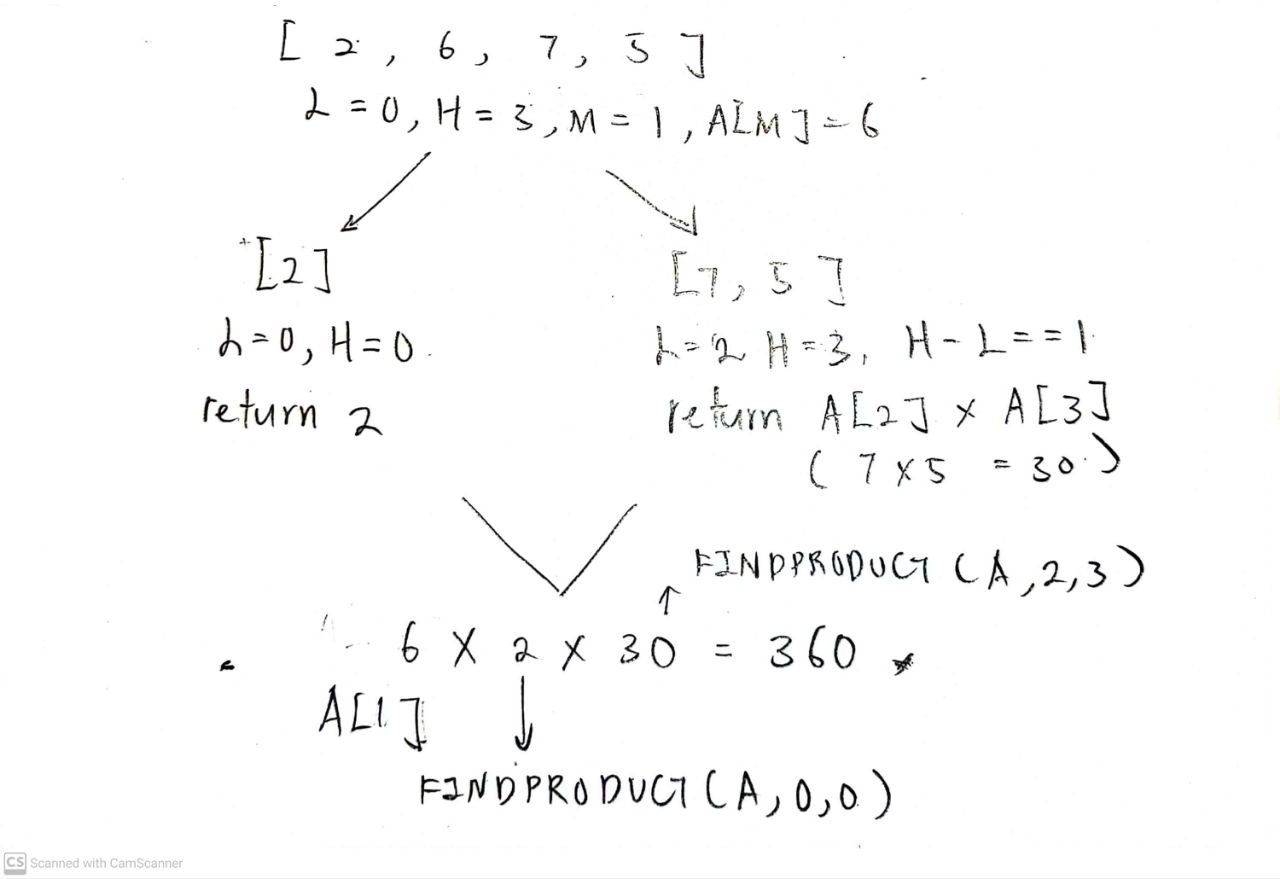 [ 2, 6, 7, 5 ]
L = 0, H = 3, M = 1, A[M] = 6
[2]
[7, 5]
L = 0, H = 0
L = 2 H = 3, H - L == 1
return 2
return A[2] × A[3]
( 7 × 5 = 30 )
FINDPRODUCT (A, 2, 3)
6 × 2 × 30 = 360
A[1]
FINDPRODUCT (A, 0, 0)
CS Scanned with CamScanner